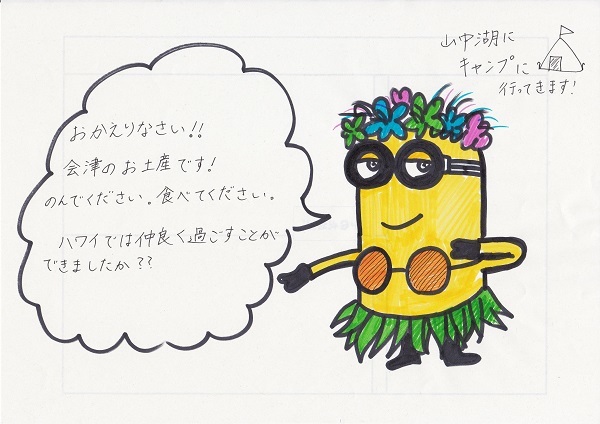 山中湖に
キャンプに
行ってきます!
おかえりなさい!!
会津のお土産です!
のんでください。食べてください。
ハワイでは仲良く過ごすことが
できましたか??